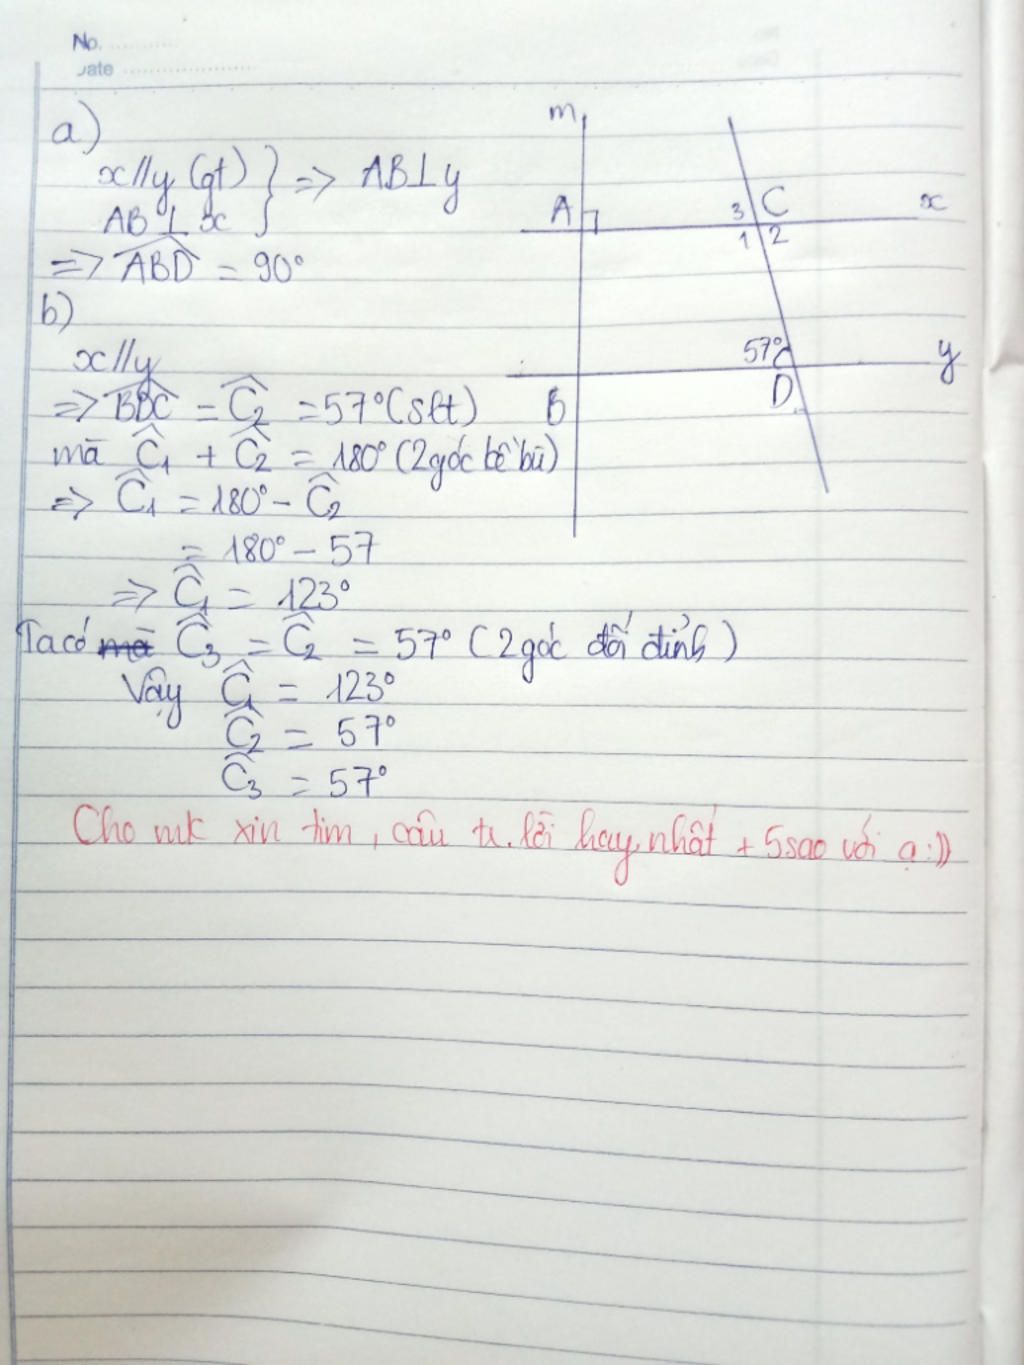 No.
Date
a)
x//y (gt)
AB ⊥ x } => AB⊥y
=> ABD = 90°
b)
x//y
=> BDC = C2 = 57° (slt)
mà C1 + C2 = 180° (2 góc kề bù)
=> C1 = 180° - C2
= 180° - 57
=> C1 = 123°
Ta có mà C3 = C2 = 57° (2 góc đối đỉnh)
Vậy C1 = 123°
C2 = 57°
C3 = 57°
Cho mk xin tim, câu tr.lời hay nhất + 5 sao với ạ :))
m
A
3 C x
1 2
57° y
B D